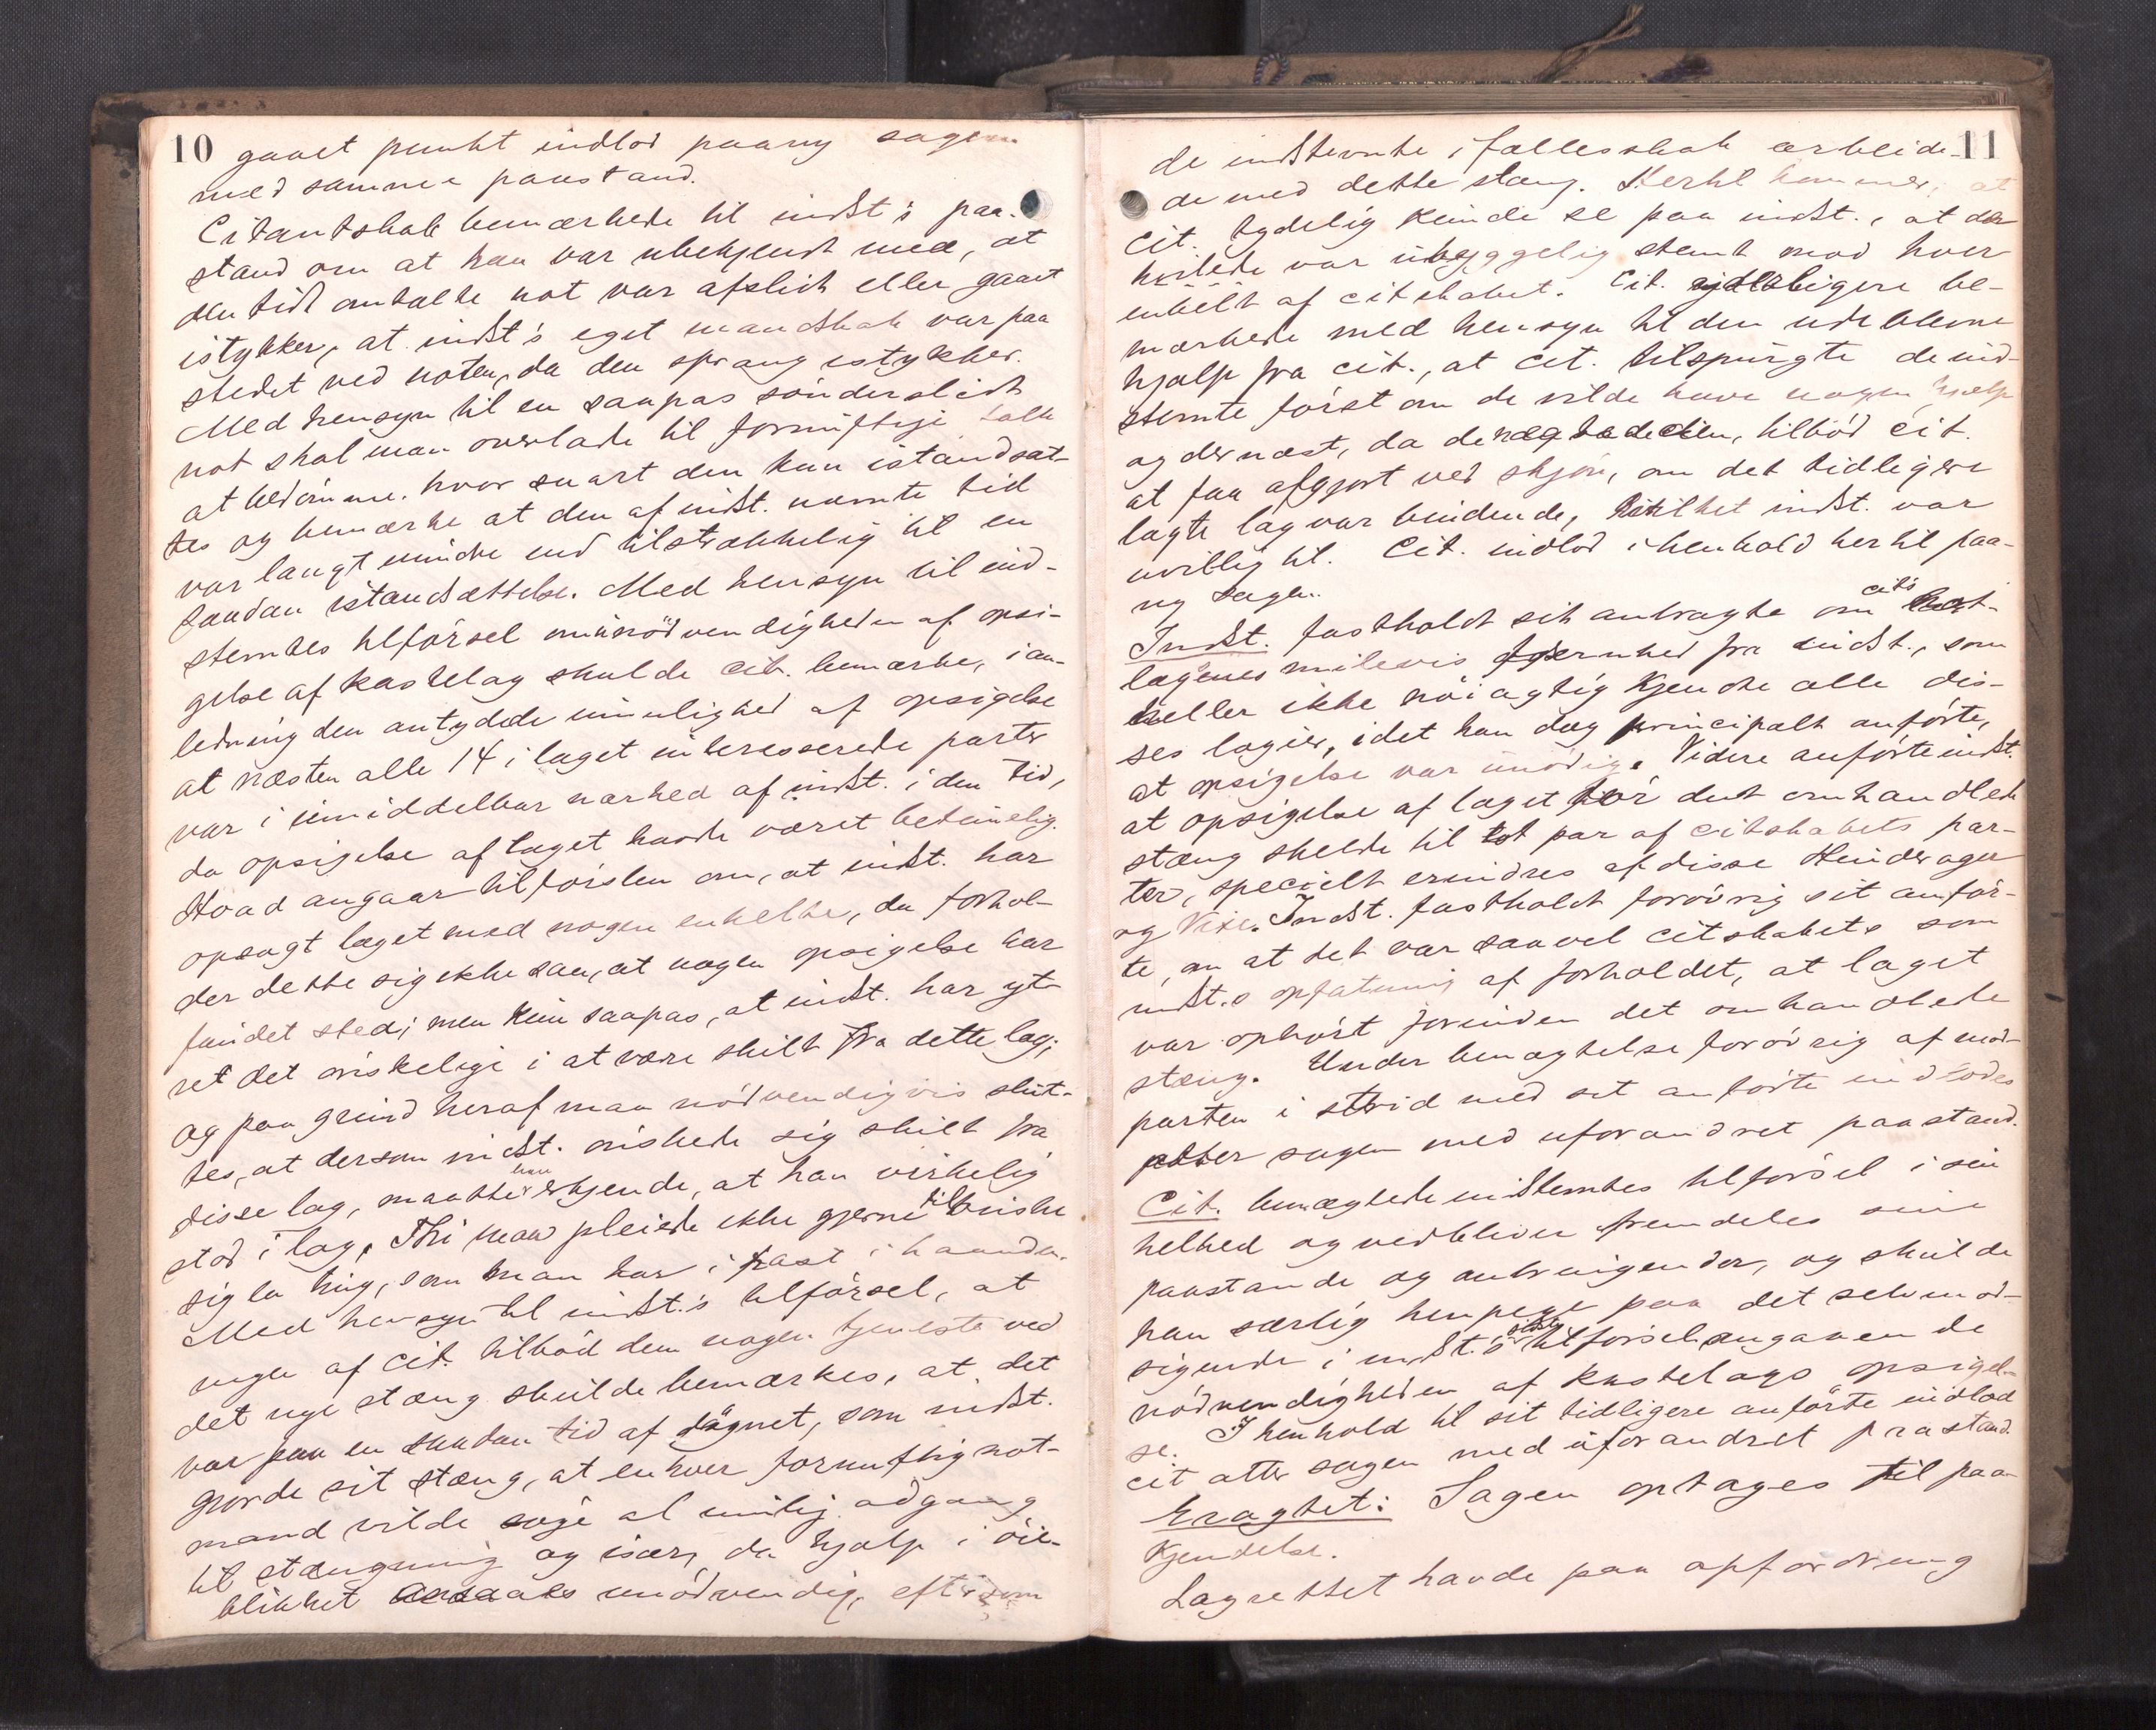 10 gaaet punkt indlod paany sagen
med samme paastand.
Citantskab bemærkede til indst's paa-
stand om at han var ubekjendt med, at
den tidt omtalte not var afslidt eller gaaet
istykker, at indst's eget mandskab var paa
stedet ved noten, da den sprang istykker.
Med hensyn til en saapas sönderslidt
not skal man overlade til fornüftige folk
at bedömme. hvor snart den kan istandsæt-
tes og bemærke at den af indst. nævnte tid
var langt mindre end tilstrækkelig til en
saadan istandsættelse. Med hensyn til ind-
stevntes tilförsel om ünödvendigheden af opsi-
gelse af kastelag skulde cit. bemærke, i an-
ledning den antydede ümulighed af opsigelse
at næsten alle 14 i laget interesserede parter
var i ümiddelbar nærhed af indst. i den tid,
da opsigelse af laget havde været betimelig.
Hvad angaar tilförslen om, at indst. har
opsagt laget med nogen enkelte, da forhol-
der dette sig ikke saa, at nogen opsigelse har
fundet sted; men kün saapas, at indst. har yt-
ret det önskelige i at være skilt fra dette lag;
og paa grund heraf maa nödvendigvis slüt-
tes, at dersom indst. önskede sig skilt fra
disse lag, maatte han erkjende, at han virkelig
stod i lag. Thi man pleiede ikke gjerne til önske
sig la ting, som man har i fast i haanden.
Med hensyn til indst.'s tilförsel, at
ingen af cit. tilböd dem nogen tjeneste ved
det nye stæng skulde bemærkes, at det
var paa en saadan tid af dögnet, som indst.
gjorde sit stæng, at enhver fornuftig not-
mand vilde söge al mulig adgang
til stængning og især, da hjælp i öie-
blikket ansaaes unödvendig, eftersom
11
de indstevnte i fællesskab arbeide-
de med dette stæng. Hertil kommer, at
Cit. tydelig künde se paa indst., at der
hvilede var ühyggelig stemt mod hver
enkelt af citskabet. Cit. yderligere be-
mærkede med hensyn til den udeblevne
hjælp fra cit., at cit. tilspürgte de ind-
stevnte först om de vilde have nogen hjælp
og dernæst, da de nægtede den, tilböd cit.
at faa afgjort ved skjön, om det tidligere
lagte lag var bindende, hvilket indst. var
uvillig til. Cit. indlod i henhold hertil paa-
ny sagen.
Indst. fastholdt sit antragte om cit's
lagenes milevis fjernhed fra indst., som
heller ikke nöiagtig kjendte alle dis-
ses lagier, idet han dog principalt anförte,
at opsigelse var ünödig. Videre anförte indst.
at opsigelse af laget för det omhandlede
stæng skede til et par af citskabets par-
ter, specielt erindres af disse Hinderager
og Vixe. Indst. fastholdt forövrig sit anför-
te, om at det var saavel citskabets som
indst.s opfatning af forholdet, at laget
var ophört forinden det omhandlede
stæng. Under benægtelse forövrig af mod-
parten i strid med set anförte indlodes
atter sagen med uforandret paastand.
Cit. benægtede indstevntes tilförsel i sin
helhed og vedbliver fremdeles sine
paastande og anbringender, og skulde
han særlig henpege paa det selvmod-
sigende i indst.'s sidste tilförsel angaaende
nödvendigheden af kastelags opsigel-
se. I henhold til sit tidligere anförte indlod
cit atter sagen med üforandret paastand.
Eragtet: Sagen optages til paa-
kjendelse.
Lagrettet havde paa opfordring